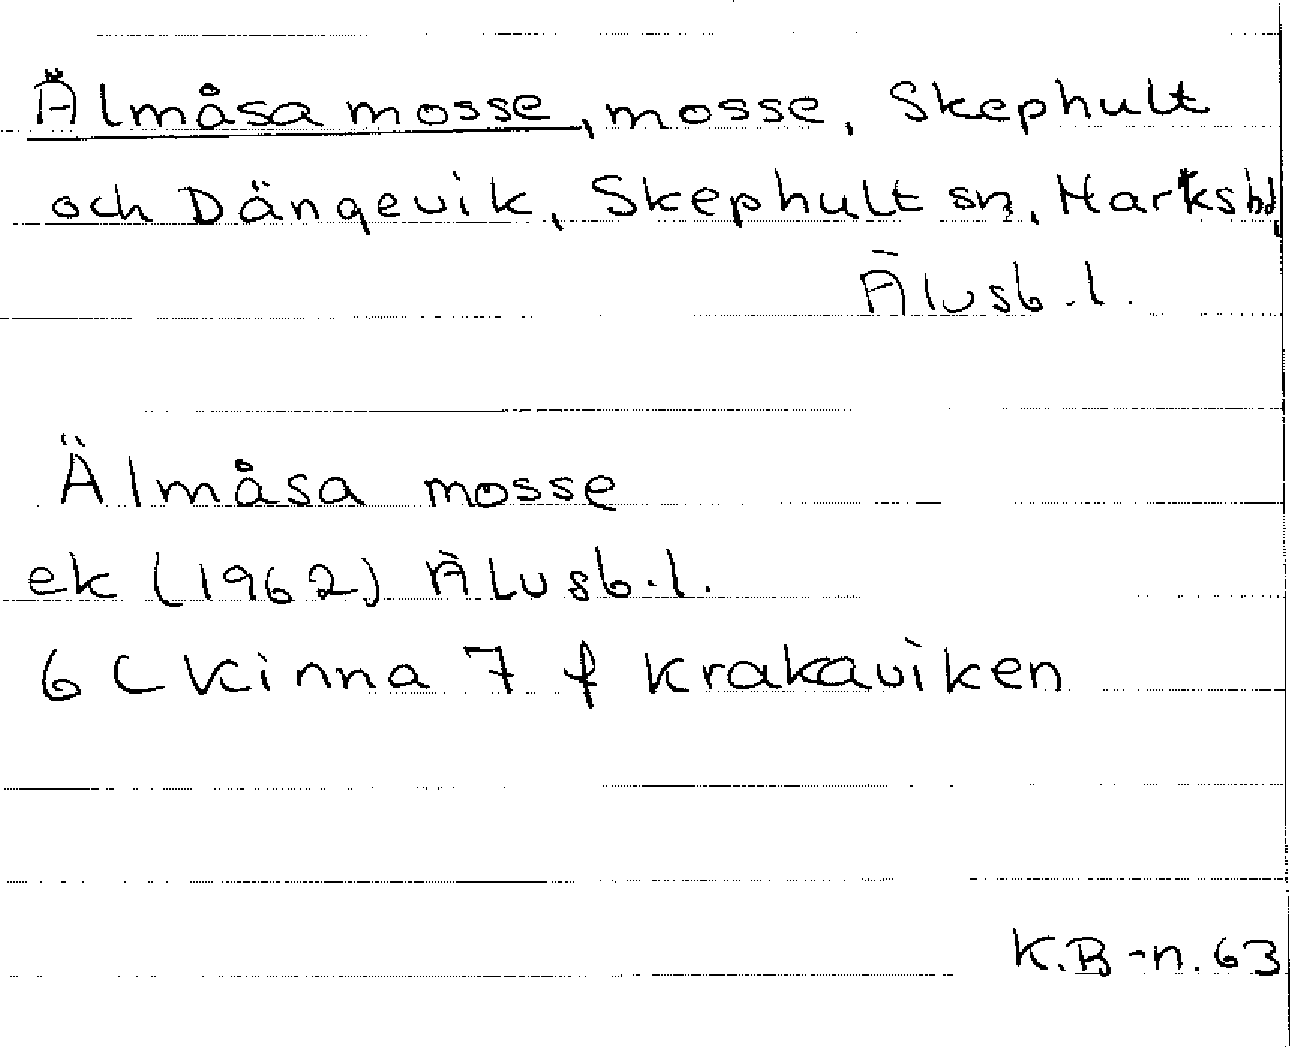 Älmåsa mosse, mosse, Skephult
och Dängevik, Skephult sn, Marks hd,
Älvsb. l.
Älmåsa mosse
ek (1962) Älvsb. l.
6 C Kinna 7 f Krakaviken
K.B-n. 63